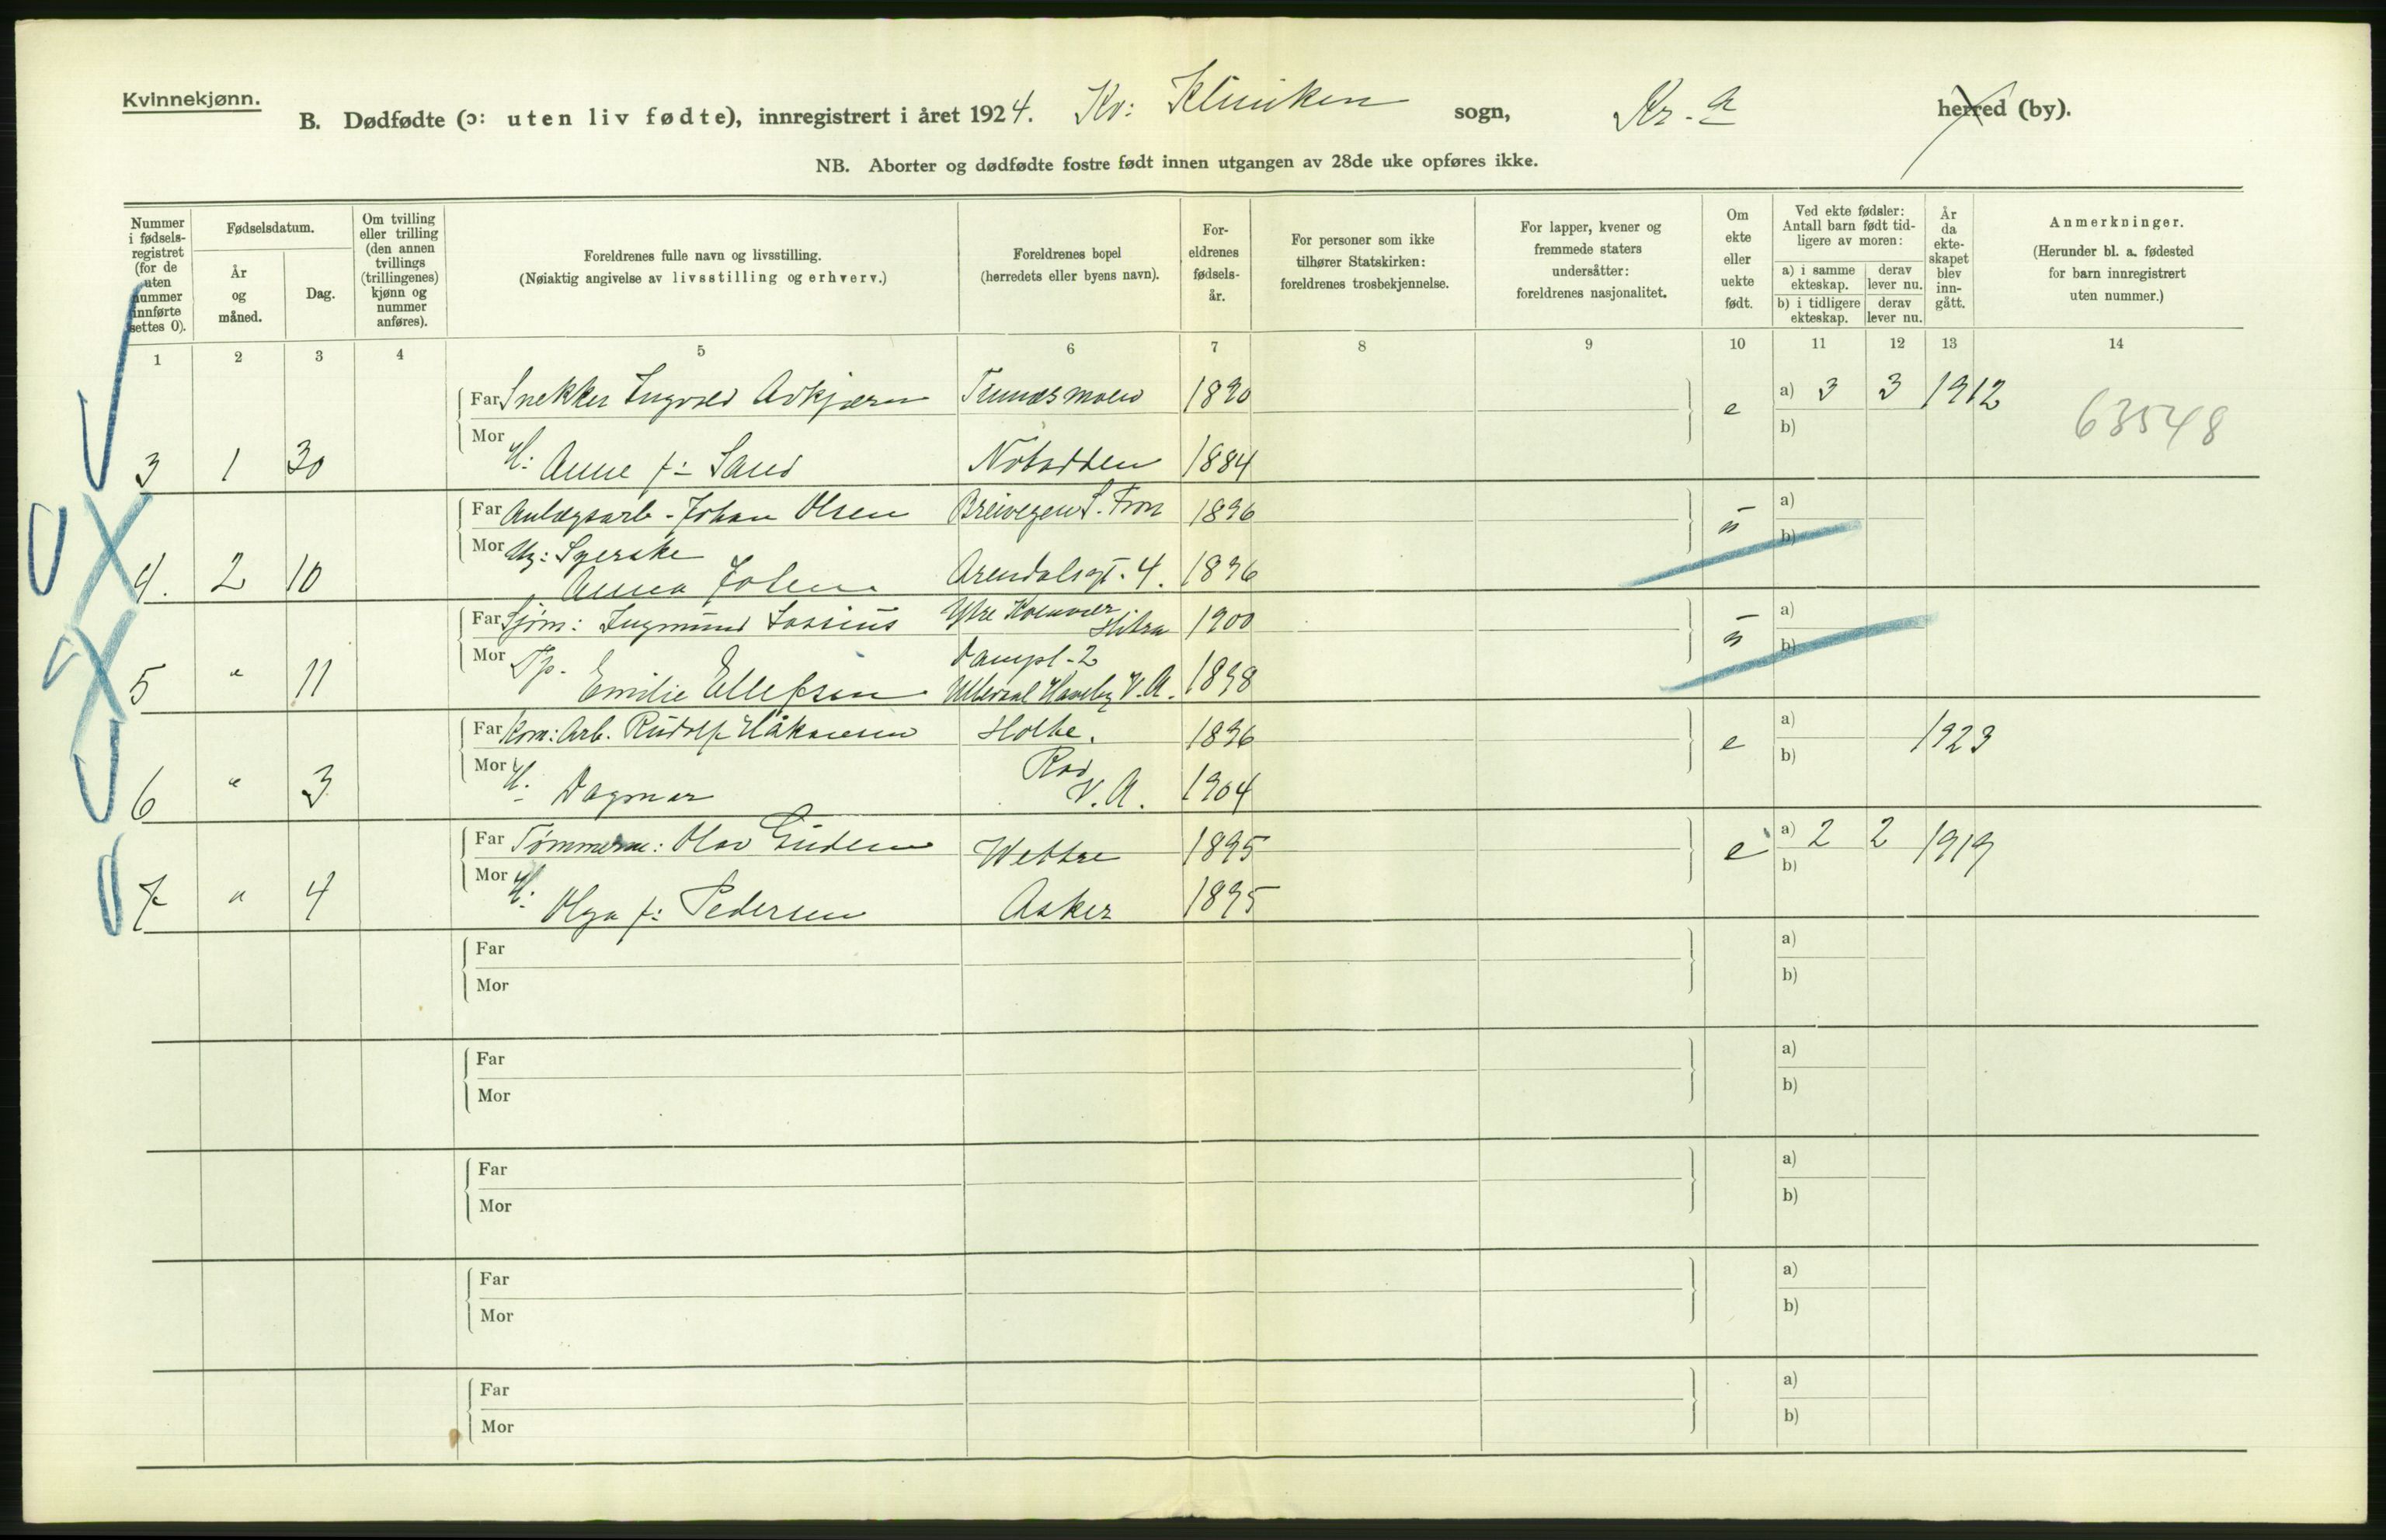 Kvinnekjønn.
B. Dødfødte (ɔ: uten liv fødte), innregistrert i året 1924. Kv: Kliniken sogn, Kr.a herred (by).
NB. Aborter og dødfødte fostre født innen utgangen av 28de uke opføres ikke.
Nummer i fødsels-registret (for de uten nummer innførte settes 0).
Fødselsdatum.
År og måned.
Dag.
Om tvilling eller trilling (den annen tvillings (trillingenes) kjønn og nummer anføres).
Foreldrenes fulle navn og livsstilling.
(Nøiaktig angivelse av livsstilling og erhverv.)
Foreldrenes bopel
(herredets eller byens navn).
For-eldrenes fødsels-år.
For personer som ikke tilhører Statskirken: foreldrenes trosbekjennelse.
For lapper, kvener og fremmede staters undersåtter: foreldrenes nasjonalitet.
Om ekte eller uekte født.
Ved ekte fødsler: Antall barn født tid-ligere av moren:
a) i samme ekteskap.
derav lever nu.
b) i tidligere ekteskap.
derav lever nu.
År da ekte-skapet blev inn-gått.
Anmerkninger.
(Herunder bl. a. fødested for barn innregistrert uten nummer.)
1 2 3 4 5 6 7 8 9 10 11 12 13 14
Far Snekker Ingvald 1890 e a) 3 3 1912
63548
3 1 30 Mor H: Anne f: Sand Notodden 1884 b)
Far Anlægsarb. Johan Olsen Breivegen S. Fron 1896 u a)
4. 2 10 Mor Ug: Syerske b)
Anna Arendalsgt. 4. 1896
Far Sjøm: Ingmund Lossius Ytre Hitra 1900 u a)
5 " 11 Mor Tp. Emilie Ellefsen Dampl. 2 b)
Ullevaal Haveby V. A. 1898
Far Kom: Arb. Rudolf Håkonsen Holte. 1896 e a) 1923
6 " 3 Mor H: Dagmar V. A. 1904 b)
Far Tømmerm: Olav Wettre 1895 e a) 2 2 1919
7 " 4 Mor H: Olga f: Pedersen Asker 1895 b)
Far a)
Mor b)
Far a)
Mor b)
Far a)
Mor b)
Far a)
Mor b)
Far a)
Mor b)